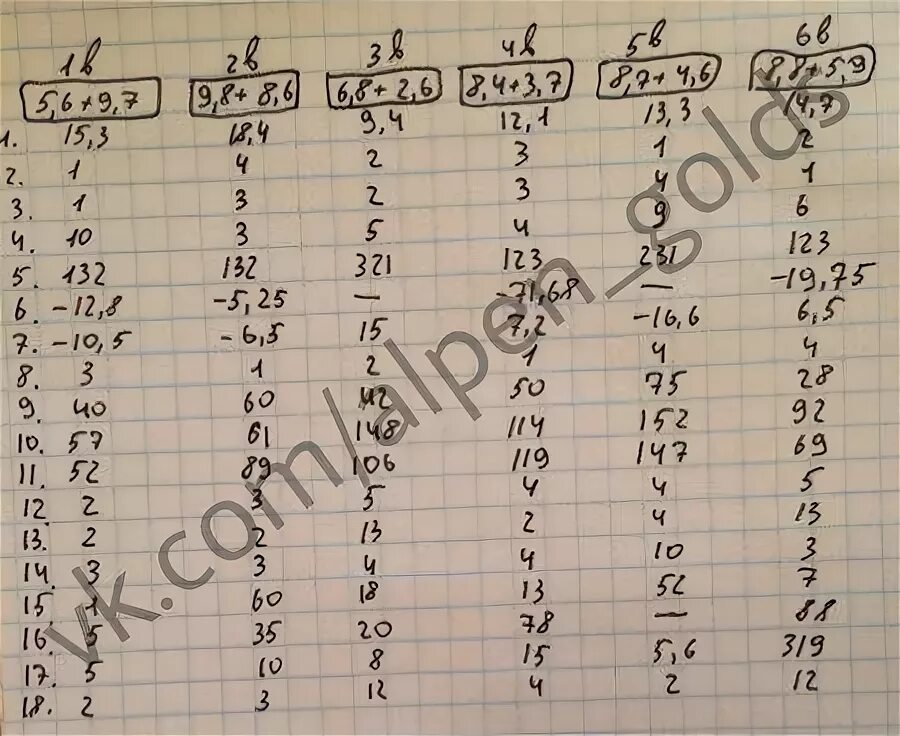 1в 2в 3в 4в 5в 6в
5,6+9,7 9,8+8,6 6,8+2,6 8,4+3,7 8,7+4,6 8,8+5,9
1. 15,3 18,4 9,4 12,1 13,3 14,7
2. 1 4 2 3 1 2
3. 1 3 2 3 4 1
4. 10 3 5 4 9 6
5. 132 132 321 123 231 123
6. -12,8 -5,25 — -71,68 — -19,75
7. -10,5 -6,5 15 7,2 -16,6 6,5
8. 3 1 2 1 4 4
9. 40 60 42 50 75 28
10. 57 61 148 114 152 92
11. 52 89 106 119 147 69
12. 2 3 5 4 4 5
13. 2 2 13 2 4 13
14. 3 3 4 4 10 3
15. 1 60 18 13 52 7
16. 5 35 20 78 — 88
17. 5 10 8 15 5,6 319
18. 2 3 12 4 2 12
vk.com/alpen_golds